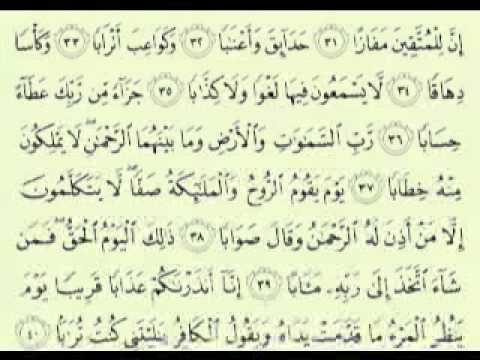 إِنَّ لِلْمُتَّقِينَ مَفَازًا ٣١ حَدَآئِقَ وَأَعْنَٰبًا ٣٢ وَكَوَاعِبَ أَتْرَابًا ٣٣ وَكَأْسًا
دِهَاقًا ٣٤ لَّا يَسْمَعُونَ فِيهَا لَغْوًا وَلَا كِذَّٰبًا ٣٥ جَزَآءً مِّن رَّبِّكَ عَطَآءً
حِسَابًا ٣٦ رَّبِّ ٱلسَّمَٰوَٰتِ وَٱلْأَرْضِ وَمَا بَيْنَهُمَا ٱلرَّحْمَٰنِ ۖ لَا يَمْلِكُونَ
مِنْهُ خِطَابًا ٣٧ يَوْمَ يَقُومُ ٱلرُّوحُ وَٱلْمَلَٰٓئِكَةُ صَفًّا ۖ لَّا يَتَكَلَّمُونَ
إِلَّا مَنْ أَذِنَ لَهُ ٱلرَّحْمَٰنُ وَقَالَ صَوَابًا ٣٨ ذَٰلِكَ ٱلْيَوْمُ ٱلْحَقُّ ۖ فَمَن
شَآءَ ٱتَّخَذَ إِلَىٰ رَبِّهِۦ مَـَٔابًا ٣٩ إِنَّآ أَنذَرْنَٰكُمْ عَذَابًا قَرِيبًا يَوْمَ
يَنظُرُ ٱلْمَرْءُ مَا قَدَّمَتْ يَدَاهُ وَيَقُولُ ٱلْكَافِرُ يَٰلَيْتَنِى كُنتُ تُرَٰبًۢا ٤٠